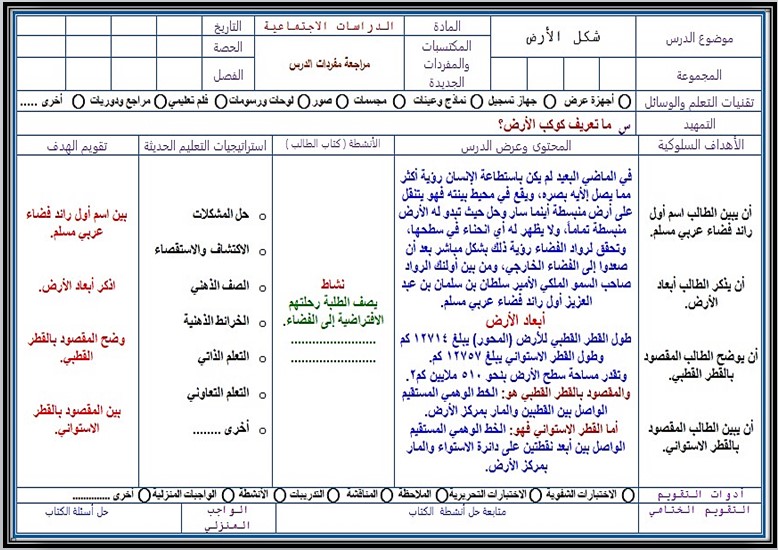 موضوع الدرس
شكل الأرض
المادة
الدراسات الاجتماعية
التاريخ
المجموعة
المكتسبات
والمفردات
الجديدة
مراجعة مفردات الدرس
الحصة
الفصل
تقنيات التعلم والوسائل
أجهزة عرض جهاز تسجيل نماذج وعينات مجسمات صور لوحات ورسومات فلم تعليمي مراجع ودوريات أخرى .....
التمهيد
س ما تعريف كوكب الأرض؟
الأهداف السلوكية
المحتوى وعرض الدرس
الأنشطة ( كتاب الطالب )
استراتيجيات التعليم الحديثة
تقويم الهدف
أن يبين الطالب اسم أول
رائد فضاء عربي مسلم.
أن يذكر الطالب أبعاد
الأرض.
أن يوضح الطالب المقصود
بالقطر القطبي.
أن يبين الطالب المقصود
بالقطر الاستواني.
في الماضي البعيد لم يكن باستطاعة الإنسان رؤية أكثر
مما يصل إلأيه بصره، ويقع في محيط بيئته فهو يتنقل
على أرض منبسطة أينما سار وحل حيث تبدو له الأرض
منبسطة تماماً، ولا يظهر له أي انحناء في سطحها،
وتحقق لرواد الفضاء رؤية ذلك بشكل مباشر بعد أن
صعدوا إلى الفضاء الخارجي، ومن بين أولئك الرواد
صاحب السمو الملكي الأمير سلطان بن سلمان بن عبد
العزيز أول رائد فضاء عربي مسلم.
أبعاد الأرض
طول القطر القطبي للأرض (المحور) يبلغ ١٢٧١٤ كم
وطول القطر الاستواني يبلغ ١٢٧٥٧ كم.
وتقدر مساحة سطح الأرض بنحو ٥١٠ ملايين كم٢.
والمقصود بالقطر القطبي هو: الخط الوهمي المستقيم
الواصل بين القطبين والمار بمركز الأرض.
أما القطر الاستواني فهو: الخط الوهمي المستقيم
الواصل بين أبعد نقطتين على دائرة الاستواء والمار
بمركز الأرض.
نشاط
يصف الطلبة رحلتهم
الافتراضية إلى الفضاء.
........................
........................
حل المشكلات
الاكتشاف والاستقصاء
الصف الذهني
الخرائط الذهنية
التعلم الذاتي
التعلم التعاوني
أخرى ........
بين اسم أول رائد فضاء
عربي مسلم.
اذكر أبعاد الأرض.
وضح المقصود بالقطر
القطبي.
بين المقصود بالقطر
الاستواني.
أدوات التقويم
الاختبارات الشفوية الاختبارات التحريرية الملاحظة المناقشة التدريبات الأنشطة الواجبات المنزلية أخرى ..............
التقويم الختامي
متابعة حل أنشطة الكتاب
الواجب
المنزلي
حل أسئلة الكتاب